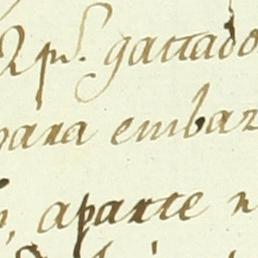 2 ps. gattado
para embaz
, aparte n